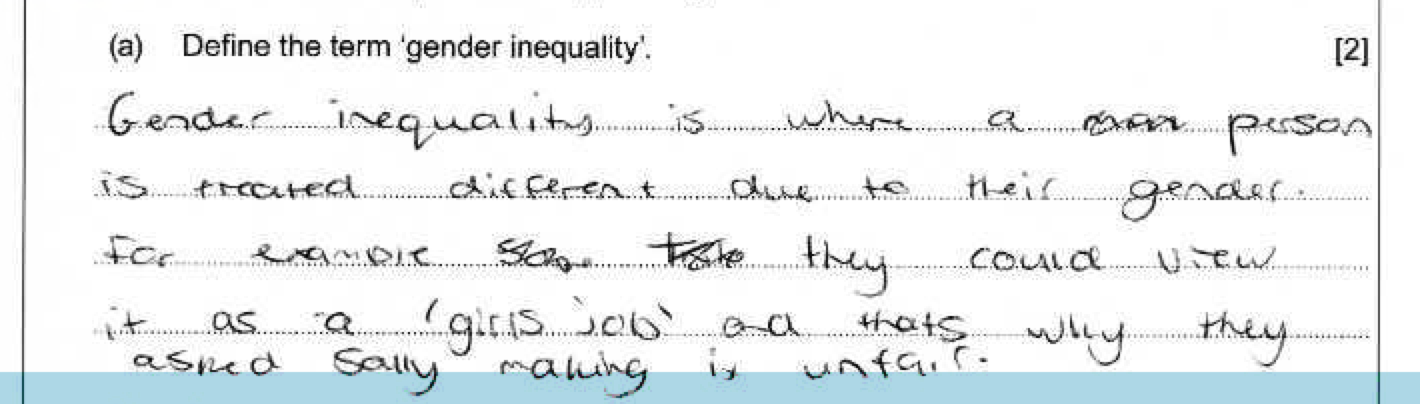 (a) Define the term 'gender inequality'. [2]
Gender inequality is where a person
is treated different due to their gender.
For example they could view
it as a 'girls job' and thats why they
asked Sally making is unfair.